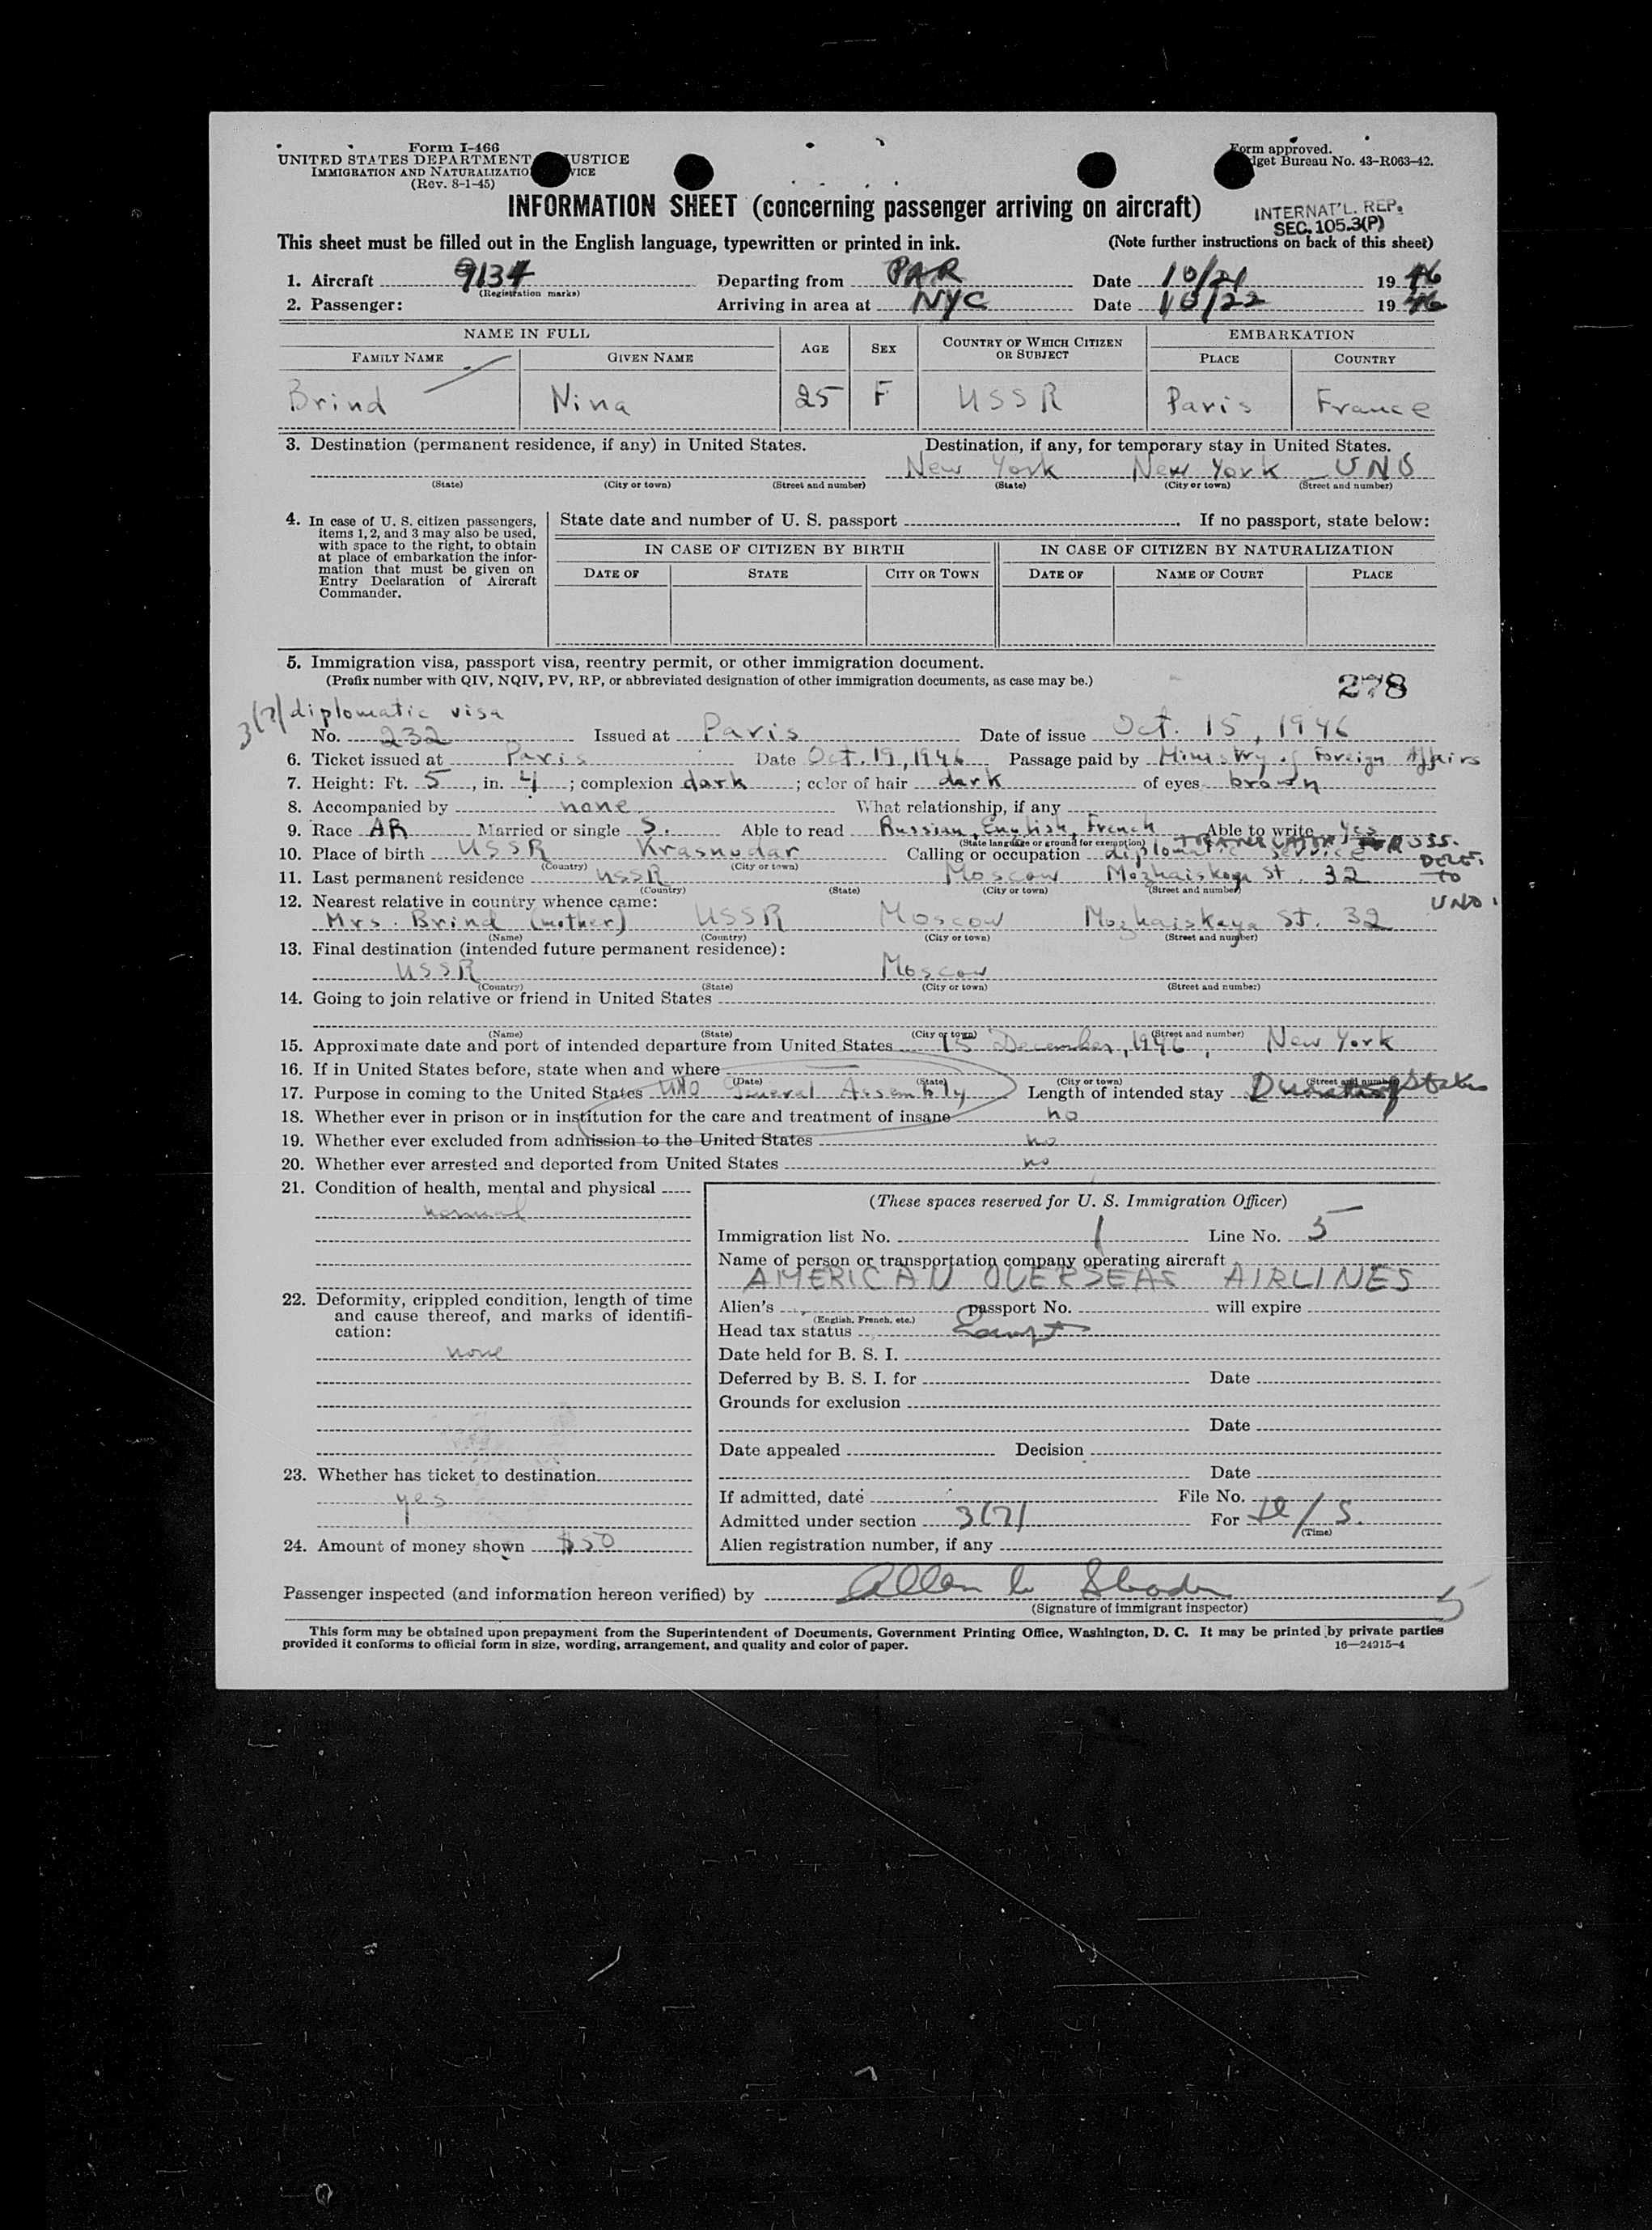 Form I-466
UNITED STATES DEPARTMENT JUSTICE
IMMIGRATION AND NATURALIZATIO VICE
(Rev. 8-1-45)
Form approved.
dget Bureau No. 43-R063-42.
INFORMATION SHEET (concerning passenger arriving on aircraft)
INTERNAT'L. REP.
SEC. 105.3(P)
This sheet must be filled out in the English language, typewritten or printed in ink. (Note further instructions on back of this sheet)
1. Aircraft 9134 Departing from PAR Date 10/21 1946
(Registration marks)
2. Passenger: Arriving in area at NYC Date 10/22 1946
NAME IN FULL AGE SEX COUNTRY OF WHICH CITIZEN OR SUBJECT EMBARKATION
FAMILY NAME GIVEN NAME PLACE COUNTRY
Brind Nina 25 F USSR Paris France
3. Destination (permanent residence, if any) in United States. Destination, if any, for temporary stay in United States.
New York New York UNO
(State) (City or town) (Street and number) (State) (City or town) (Street and number)
4. In case of U. S. citizen passengers, items 1, 2, and 3 may also be used, with space to the right, to obtain at place of embarkation the information that must be given on Entry Declaration of Aircraft Commander.
State date and number of U. S. passport . If no passport, state below:
IN CASE OF CITIZEN BY BIRTH IN CASE OF CITIZEN BY NATURALIZATION
DATE OF STATE CITY OR TOWN DATE OF NAME OF COURT PLACE
5. Immigration visa, passport visa, reentry permit, or other immigration document.
(Prefix number with QIV, NQIV, PV, RP, or abbreviated designation of other immigration documents, as case may be.)
278
3(7) diplomatic visa
No. 232 Issued at Paris Date of issue Oct. 15, 1946
6. Ticket issued at Paris Date Oct. 19, 1946 Passage paid by Ministry of Foreign Affairs
7. Height: Ft. 5, in. 4; complexion dark; color of hair dark of eyes brown
8. Accompanied by none What relationship, if any
9. Race AR Married or single S. Able to read Russian, English, French Able to write Yes
(State language or ground for exemption)
TRANSLATOR RUSS. DELE. to UNO.
10. Place of birth USSR Krasnodar Calling or occupation diplomatic service
(Country) (City or town)
11. Last permanent residence USSR Moscow Mozhaiskaya St. 32
(Country) (State) (City or town) (Street and number)
12. Nearest relative in country whence came:
Mrs. Brind (mother) USSR Moscow Mozhaiskaya St. 32
(Name) (Country) (City or town) (Street and number)
13. Final destination (intended future permanent residence):
USSR Moscow
(Country) (State) (City or town) (Street and number)
14. Going to join relative or friend in United States
(Name) (State) (City or town) (Street and number)
15. Approximate date and port of intended departure from United States 15 December, 1946, New York
16. If in United States before, state when and where
(Date) (State) (City or town) (Street and number)
17. Purpose in coming to the United States UNO General Assembly Length of intended stay
18. Whether ever in prison or in institution for the care and treatment of insane no
19. Whether ever excluded from admission to the United States no
20. Whether ever arrested and deported from United States no
21. Condition of health, mental and physical
normal
22. Deformity, crippled condition, length of time and cause thereof, and marks of identification:
none
23. Whether has ticket to destination
yes
24. Amount of money shown $50
(These spaces reserved for U. S. Immigration Officer)
Immigration list No. 1 Line No. 5
Name of person or transportation company operating aircraft
AMERICAN OVERSEAS AIRLINES
Alien's passport No. will expire
(English, French, etc.)
Head tax status Exempt
Date held for B. S. I.
Deferred by B. S. I. for Date
Grounds for exclusion
Date
Date appealed Decision
Date
If admitted, date File No.
Admitted under section 3(7) For D/S.
(Time)
Alien registration number, if any
Passenger inspected (and information hereon verified) by Allen
(Signature of immigrant inspector)
5
This form may be obtained upon prepayment from the Superintendent of Documents, Government Printing Office, Washington, D. C. It may be printed by private parties
provided it conforms to official form in size, wording, arrangement, and quality and color of paper. 16—24915-4